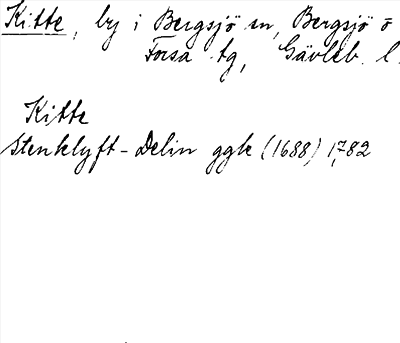 Kitte, by i Bergsjö sn, Bergsjö o
Forsa tg, Gävleb. l.
Kitte
Stenklyft-Delin ggk (1688) 1782